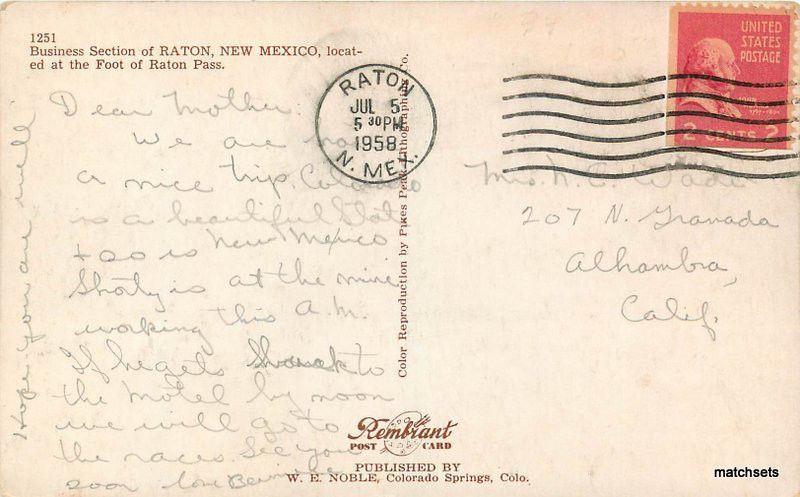 1251
Business Section of RATON, NEW MEXICO, locat-
ed at the Foot of Raton Pass.
Dear Mother:
We are
a nice trip. Colorado
is a beautiful State
+ so is New Mexico
Shorty is at the mine
working this A.M.
If he gets back to
the motel by noon
we will go to
the races See you
soon love Bernice
Hope you are well
RATON
JUL 5
5 30 PM
1958
N. MEX.
Color Reproduction by Pikes Peak Lithographing Co.
UNITED
STATES
POSTAGE
2 CENTS 2
Mrs. N. C. Wade
207 N. Granada
Alhambra,
Calif.
Rembrant
POST CARD
PUBLISHED BY
W. E. NOBLE, Colorado Springs, Colo.
matchsets